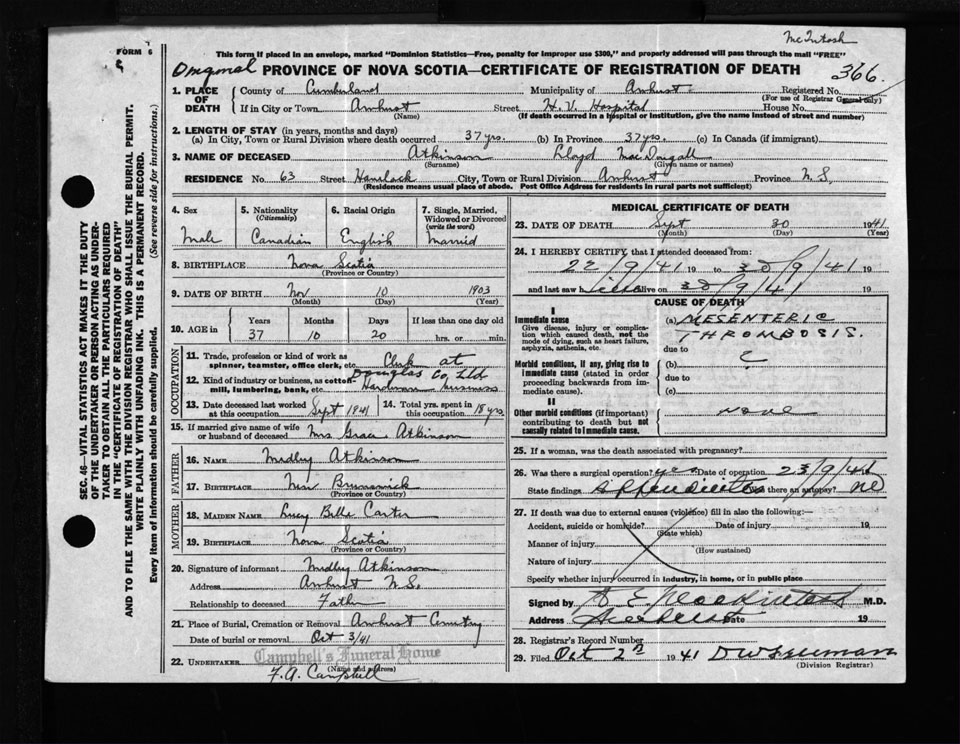 McIntosh
FORM 6
This form if placed in an envelope, marked "Dominion Statistics—Free, penalty for improper use $300," and properly addressed will pass through the mail "FREE"
PROVINCE OF NOVA SCOTIA—CERTIFICATE OF REGISTRATION OF DEATH 366
1. PLACE OF DEATH County of Cumberland Municipality of Amherst Registered No.
(For use of Registrar General only)
If in City or Town Amherst Street H. V. Hospital House No.
(Name) (If death occurred in a hospital or institution, give the name instead of street and number)
2. LENGTH OF STAY (in years, months and days)
(a) In City, Town or Rural Division where death occurred 37 yrs. (b) In Province 37 yrs. (c) In Canada (if immigrant)
3. NAME OF DECEASED Atkinson Lloyd MacDougall
(Surname) (Given name or names)
RESIDENCE No. 63 Street City, Town or Rural Division Amherst Province N.S.
(Residence means usual place of abode. Post Office Address for residents in rural parts not sufficient)
SEC. 46—VITAL STATISTICS ACT MAKES IT THE DUTY
OF THE UNDERTAKER OR PERSON ACTING AS UNDER-
TAKER TO OBTAIN ALL THE PARTICULARS REQUIRED
IN THE "CERTIFICATE OF REGISTRATION OF DEATH"
AND TO FILE THE SAME WITH THE DIVISION REGISTRAR WHO SHALL ISSUE THE BURIAL PERMIT.
WRITE PLAINLY WITH UNFADING INK. THIS IS A PERMANENT RECORD.
Every item of information should be carefully supplied. (See reverse side for instructions.)
4. Sex
Male
5. Nationality
(Citizenship)
Canadian
6. Racial Origin
English
7. Single, Married,
Widowed or Divorced
(write the word)
Married
8. BIRTHPLACE Nova Scotia
(Province or Country)
9. DATE OF BIRTH Nov 10 1903
(Month) (Day) (Year)
10. AGE in Years Months Days If less than one day old
37 10 20 hrs. or min.
OCCUPATION
11. Trade, profession or kind of work as
spinner, teamster, office clerk, etc. Clerk at
Douglas Co Ltd
12. Kind of industry or business, as cotton-
mill, lumbering, bank, etc. Hardware Business
13. Date deceased last worked
at this occupation Sept 1941
14. Total yrs. spent in
this occupation 18 yrs.
15. If married give name of wife
or husband of deceased Mrs. Grace Atkinson
FATHER
16. NAME Medley Atkinson
17. BIRTHPLACE New Brunswick
(Province or Country)
MOTHER
18. MAIDEN NAME Lucy Belle Carter
19. BIRTHPLACE Nova Scotia
(Province or Country)
20. Signature of informant Medley Atkinson
Address Amherst N.S.
Relationship to deceased Father
21. Place of Burial, Cremation or Removal Amherst Cemetry
Date of burial or removal Oct 3/41
22. UNDERTAKER Campbell's Funeral Home
(Name and address)
F. A. Campbell
MEDICAL CERTIFICATE OF DEATH
23. DATE OF DEATH Sept 30 1941
(Month) (Day) (Year)
24. I HEREBY CERTIFY, that I attended deceased from:
22/9/41 19 to 30/9/41 19
and last saw h alive on 30/9/41 19
CAUSE OF DEATH
I
Immediate cause
Give disease, injury or complica-
tion which caused death, not the
mode of dying, such as heart failure,
asphyxia, asthenia, etc.
(a) MESENTERIC
THROMBOSIS.
due to
Morbid conditions, if any, giving rise to
immediate cause (stated in order
proceeding backwards from im-
mediate cause).
(b)
due to
(c)
II
Other morbid conditions (if important)
contributing to death but not
causally related to immediate cause.
none
25. If a woman, was the death associated with pregnancy?
26. Was there a surgical operation? yes Date of operation 23/9/41
State findings Appendicitis Was there an autopsy? no
27. If death was due to external causes (violence) fill in also the following:—
Accident, suicide or homicide? Date of injury 19
(State which)
Manner of injury
(How sustained)
Nature of injury
Specify whether injury occurred in industry, in home, or in public place
Signed by M.D.
Address Amherst Date 19
28. Registrar's Record Number
29. Filed Oct 2nd 1941
(Division Registrar)